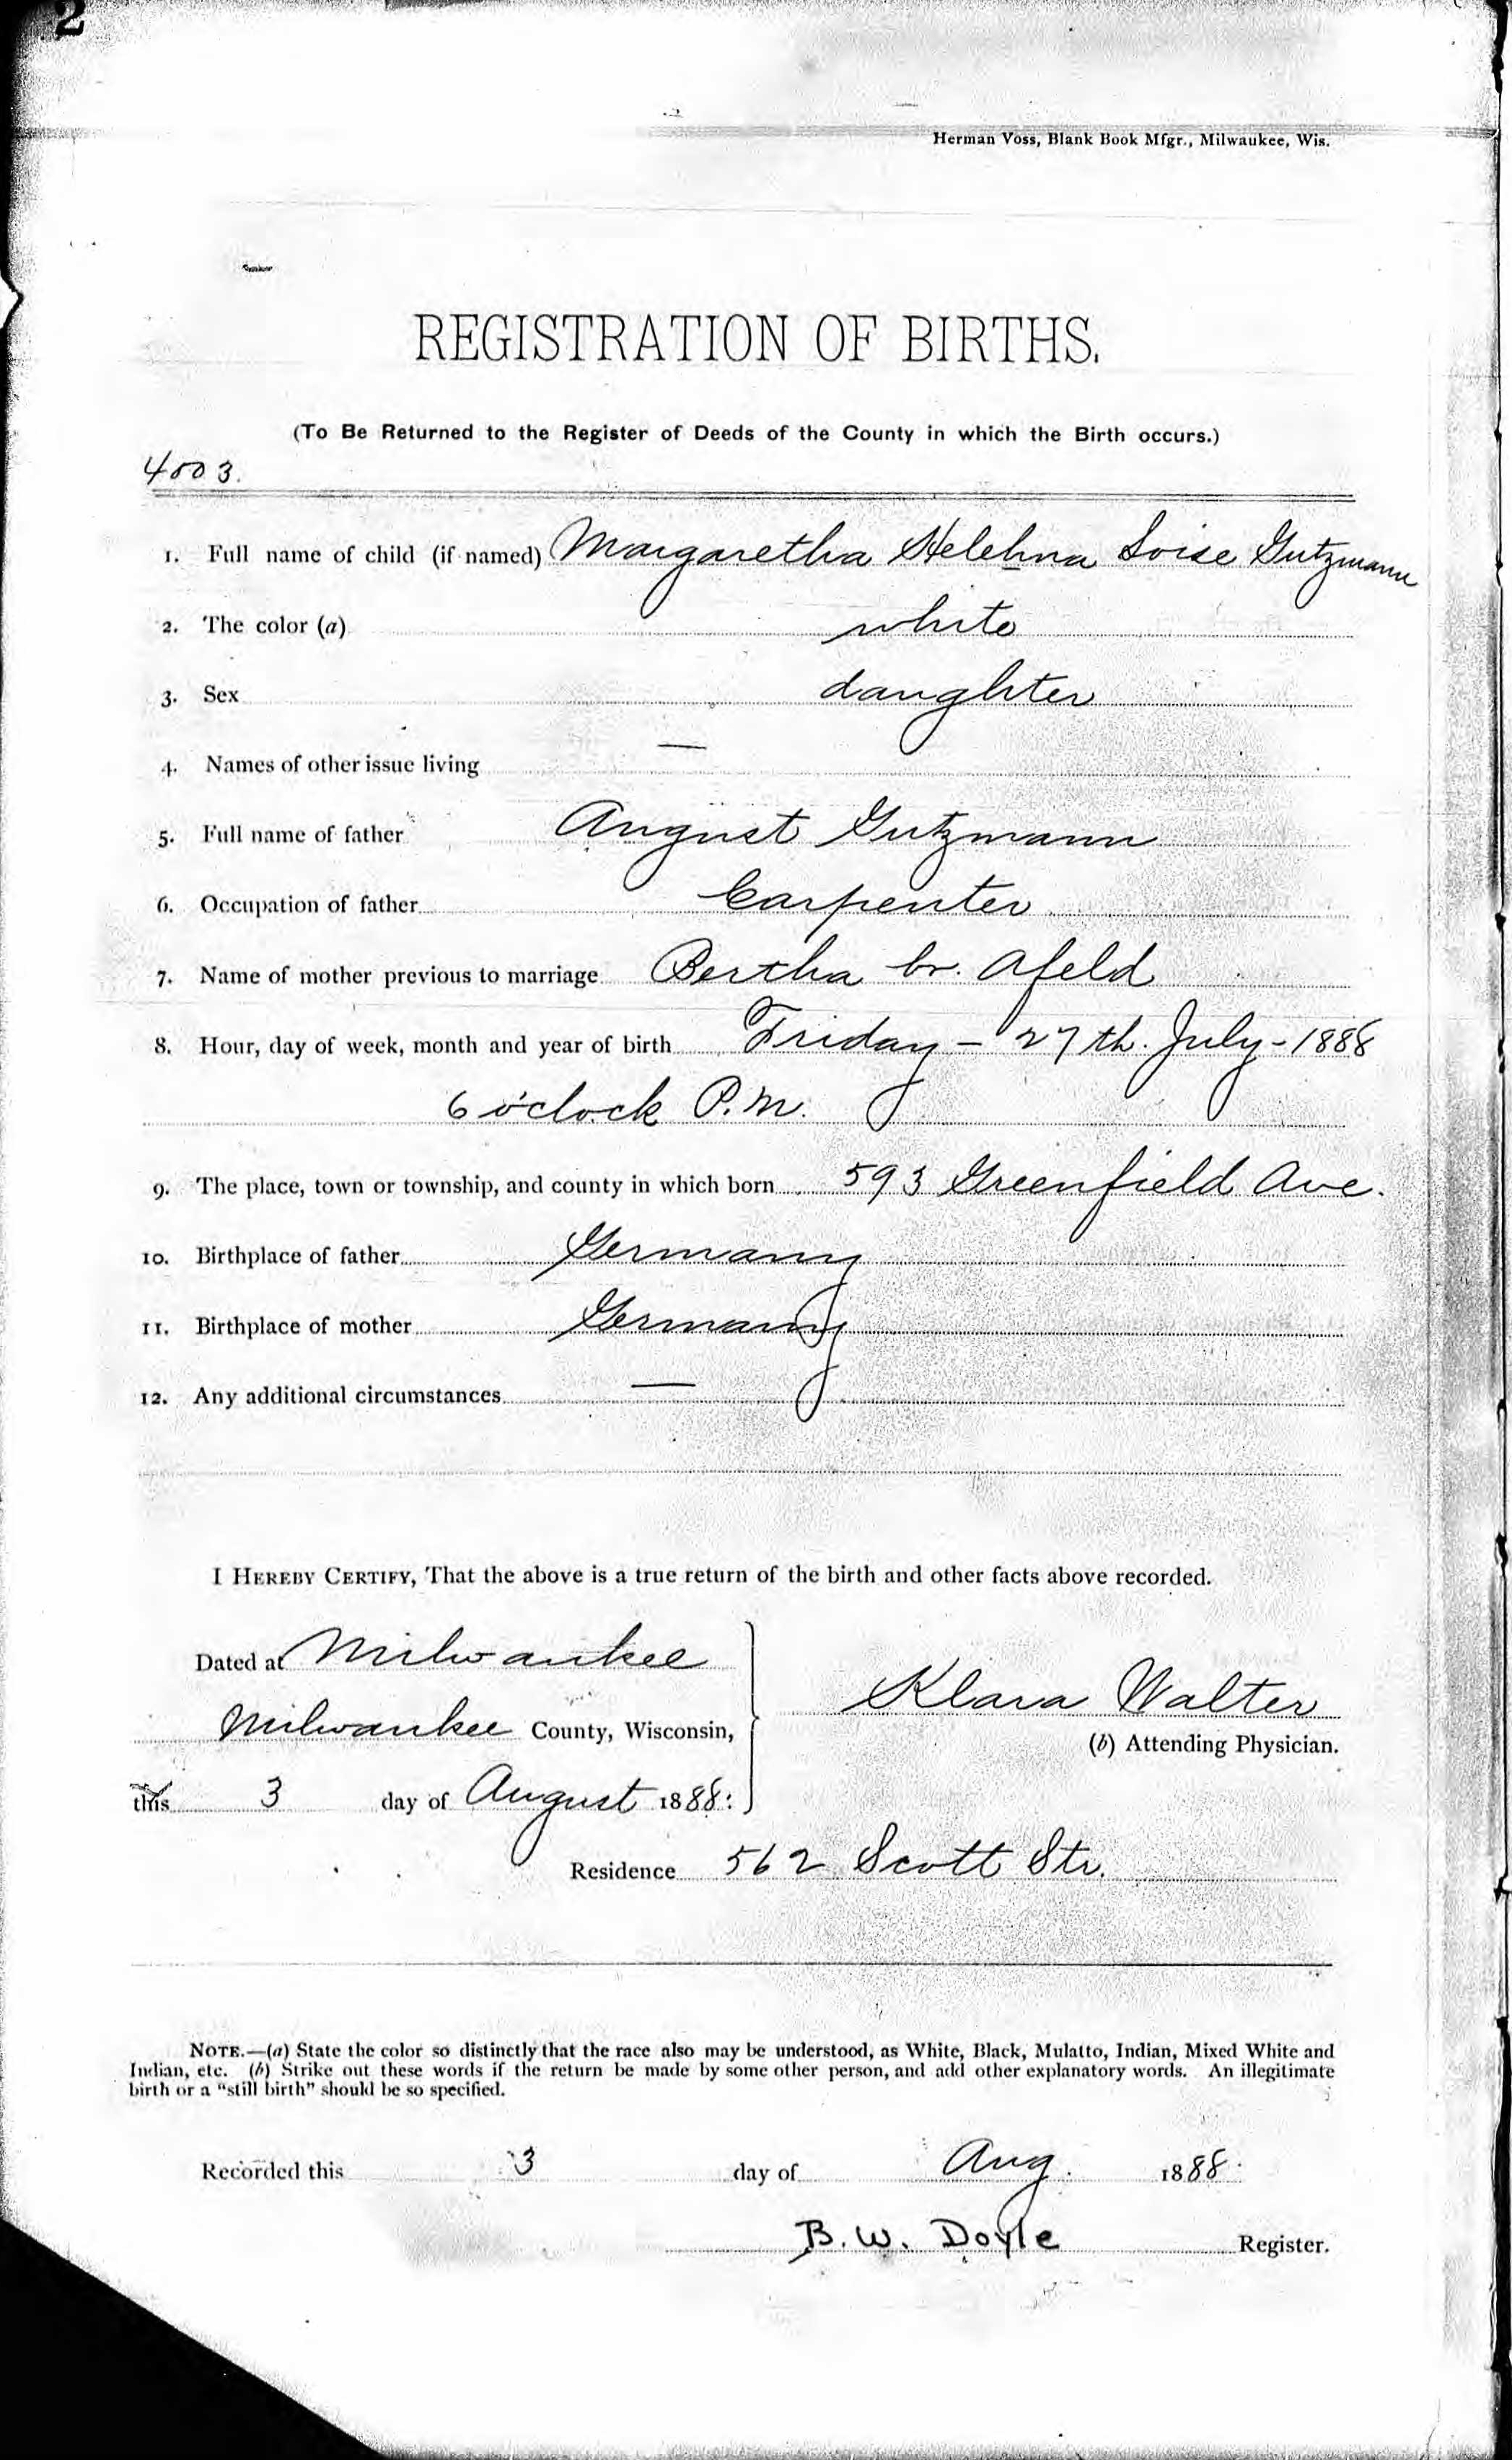 2
Herman Voss, Blank Book Mfgr., Milwaukee, Wis.
REGISTRATION OF BIRTHS.
(To Be Returned to the Register of Deeds of the County in which the Birth occurs.)
4003.
1. Full name of child (if named) Margaretha Helehna Loise Gutzmann
2. The color (a) white
3. Sex daughter
4. Names of other issue living —
5. Full name of father August Gutzmann
6. Occupation of father Carpenter
7. Name of mother previous to marriage Bertha br. Afeld
8. Hour, day of week, month and year of birth Friday – 27th. July – 1888
6 o'clock P.M.
9. The place, town or township, and county in which born 593 Greenfield Ave.
10. Birthplace of father Germany
11. Birthplace of mother Germany
12. Any additional circumstances —
I HEREBY CERTIFY, That the above is a true return of the birth and other facts above recorded.
Dated at Milwaukee
Milwaukee County, Wisconsin,
Klara Walter
(b) Attending Physician.
this 3 day of August 1888:
Residence 562 Scott Str.
NOTE.—(a) State the color so distinctly that the race also may be understood, as White, Black, Mulatto, Indian, Mixed White and
Indian, etc. (b) Strike out these words if the return be made by some other person, and add other explanatory words. An illegitimate
birth or a "still birth" should be so specified.
Recorded this 3 day of Aug. 1888.
B. W. Doyle Register.